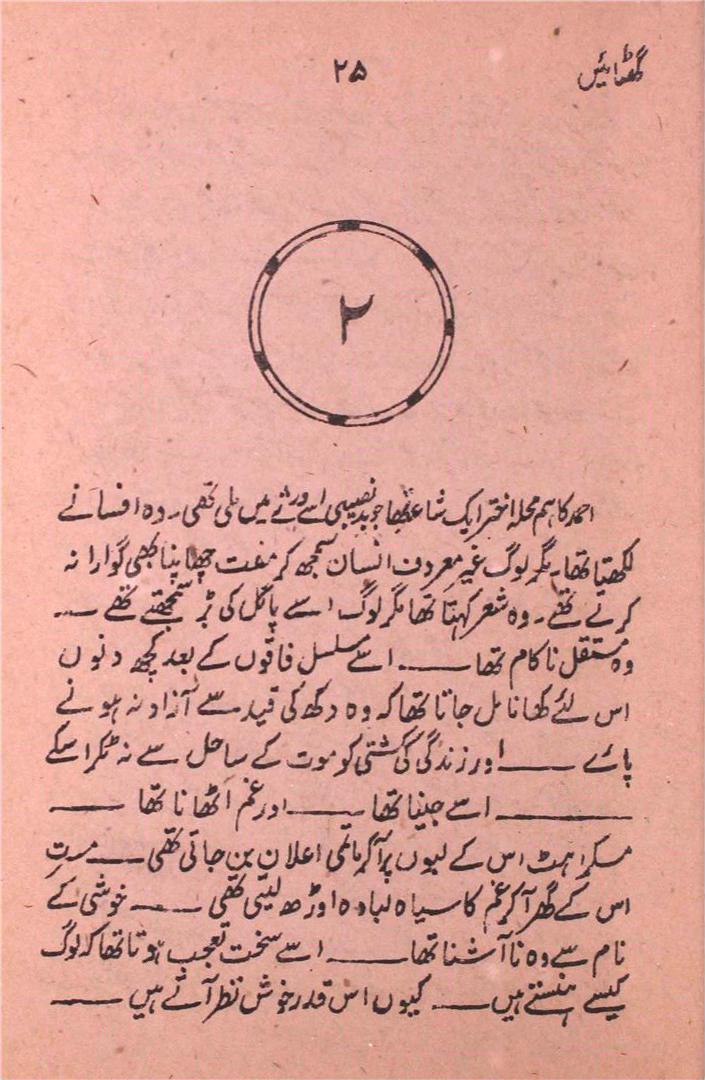 گھٹائیں
۲۵
۲
احمد کا ہم محلہ اختر ایک شاعر تھا جو بدنصیبی اسے ورثے میں ملی تھی۔ وہ افسانے
لکھتا تھا۔ مگر لوگ غیر معروف انسان سمجھ کر مفت چھاپنا بھی گوارا نہ
کرتے تھے۔ وہ شعر کہتا تھا مگر لوگ اسے پاگل کی بڑ سمجھتے تھے ——
وہ مستقل ناکام تھا —— اسے مسلسل فاقوں کے بعد کچھ دنوں
اس لئے کھانا مل جاتا تھا کہ وہ دکھ کی قید سے آزاد نہ ہونے
پائے —— اور زندگی کی کشتی کو موت کے ساحل سے نہ ٹکرا سکے
—— اسے جینا تھا —— اور غم اٹھانا تھا ——
مسکراہٹ اس کے لبوں پر آکر ماتمی اعلان بن جاتی تھی —— مسرت
اس کے گھر آکر غم کا سیاہ لبادہ اوڑھ لیتی تھی —— خوشی کے
نام سے وہ ناآشنا تھا —— اسے سخت تعجب ہوتا تھا کہ لوگ
کیسے ہنستے ہیں —— کیوں اس قدر خوش نظر آتے ہیں ——